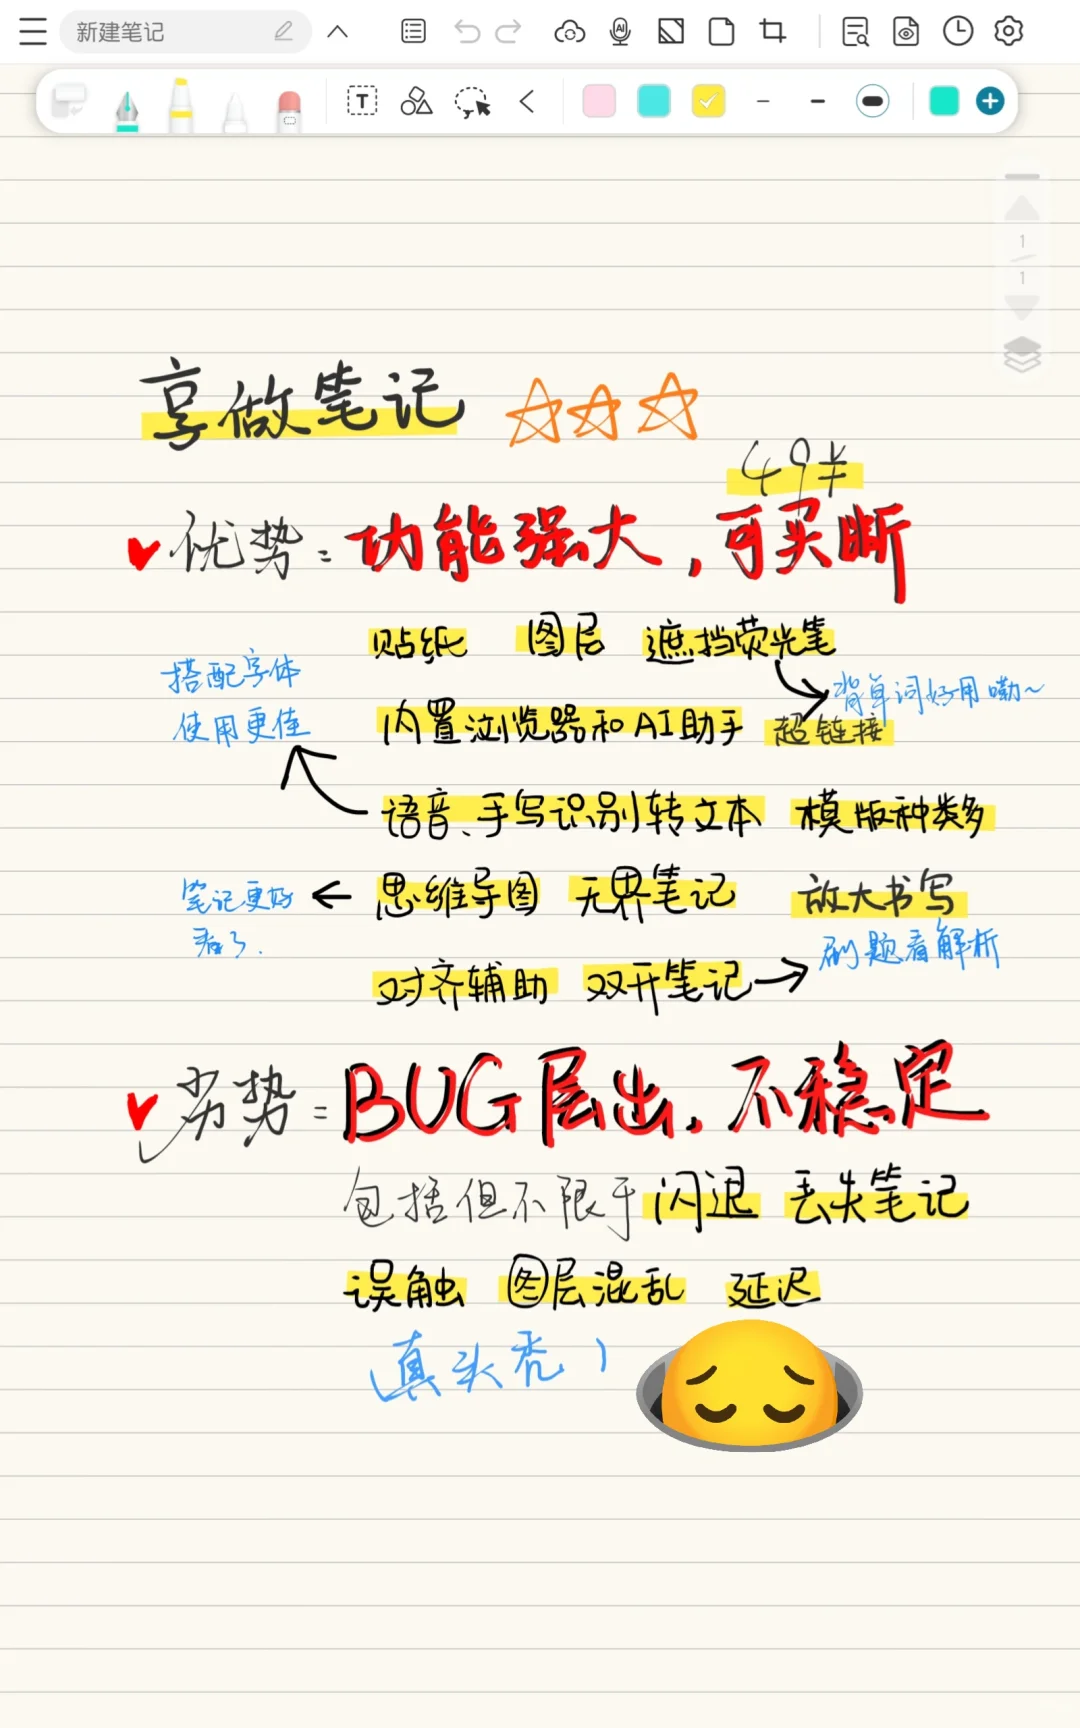 新建笔记
享做笔记
49半
优势:功能强大,可买断
贴纸 图层 遮挡荧光笔
搭配字体
使用更佳
背单词好用嘞~
内置浏览器和AI助手 超链接
语音、手写识别转文本 模版种类多
思维导图 无界笔记 放大书写
笔记更好
看了.
对齐辅助 双开笔记
刷题看解析
劣势=BUG层出,不稳定
包括但不限于闪退 丢失笔记
误触 图层混乱 延迟
真头秃
1
1
T
AI